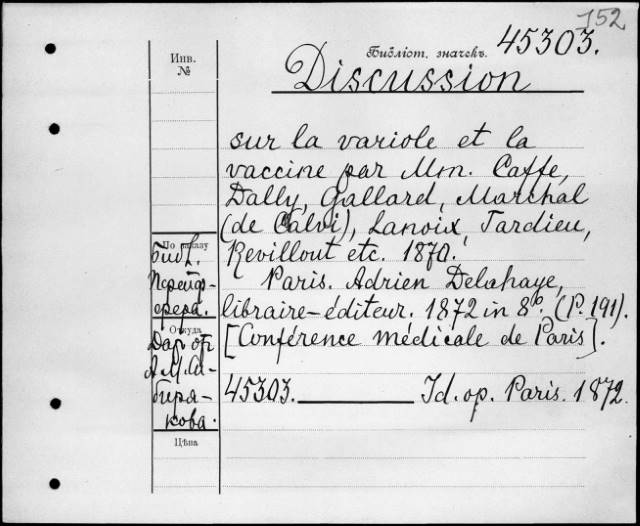 752
Инв.
№
Библіот. значекъ. 45303.
Discussion
sur la variole et la
vaccine par Mm. Caffe,
Dally, Gallard, Marchal
(de Calvi), Lanoix, Tardieu,
Revillout etc. 1870.
Paris. Adrien Delahaye,
libraire-éditeur. 1872 in 8º. (P. 191).
[Conférence médicale de Paris].
45303. Id. op. Paris. 1872.
По заказу
Библ.
Перейф-
ферра.
Откуда
Дар от
А.М. Си-
биря-
кова.
Цѣна